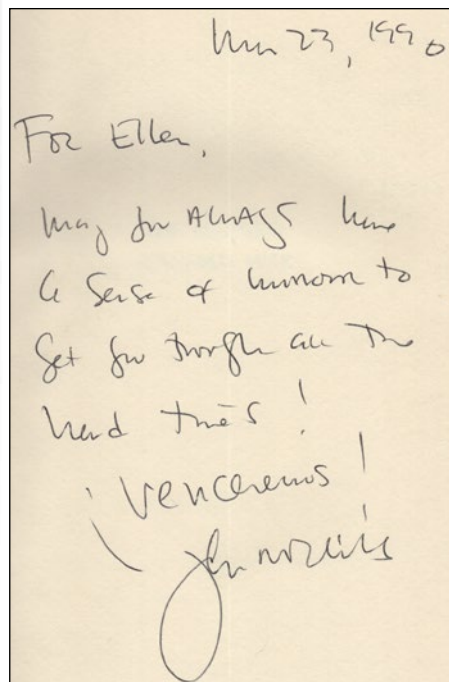 23, 1990
For Ellen,
may you Always have
a sense of humor to
get you through all the
hard times!
¡Venceremos!
John Nichols